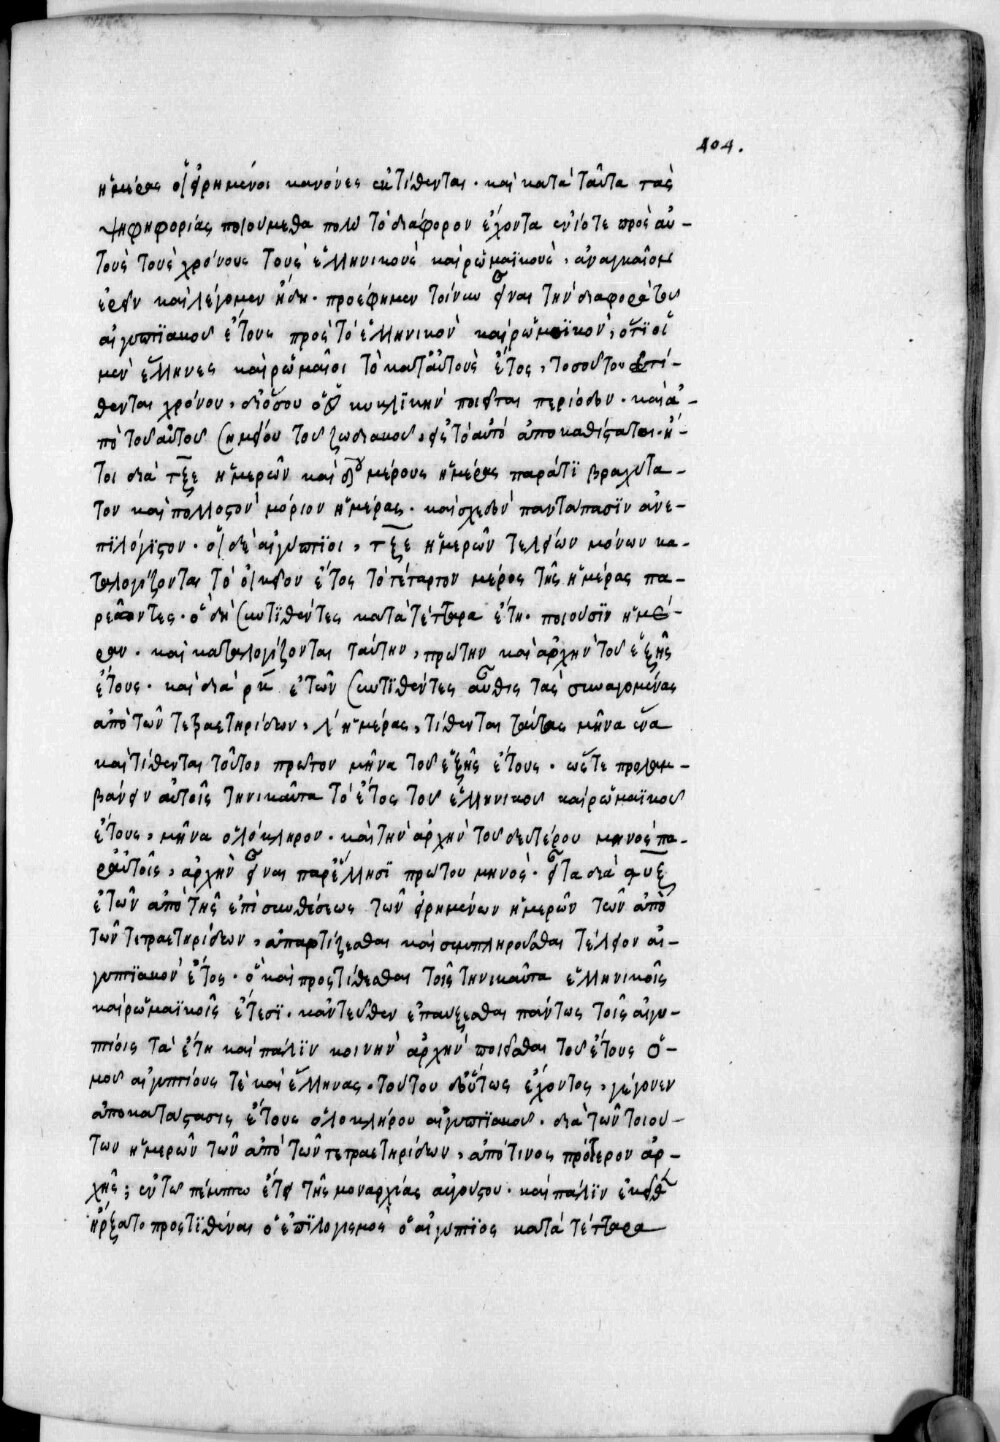 404.
ἡμέρας οἱ εἰρημένοι κανόνες ἐκτίθενται· καὶ κατὰ ταῦτα τὰς
ψηφηφορίας ποιούμεθα πολὺ τὸ διάφορον ἔχοντα ἐνίοτε πρὸς αὐ-
τοὺς τοὺς χρόνους τοὺς ἑλληνικοὺς καὶ ῥωμαϊκοὺς, ἀναγκαῖον
ἐρεῖν καὶ λέγομεν ἤδη· προέφημεν τοίνυν εἶναι τὴν διαφορὰ τοῦ
αἰγυπτϊακοῦ ἔτους πρὸς τὸ ἑλληνικὸν καὶ ῥωμαϊκὸν, ὅτϊ οἱ
μὲν ἕλληνες καὶ ῥωμαῖοι τὸ κατ' αὐτοὺς ἔτος, τοσούτου ἐκτί-
θενται χρόνου, δι' ὅσου ὁ ἥλιος κυκλϊκὴν ποιεῖται περίοδον· καὶ ἀ-
πὸ τοῦ αὐτοῦ σημείου τοῦ ζωδιακοῦ, εἰς τὸ αὐτὸ ἀποκαθίσταται· ἤ-
τοι διὰ τξε ἡμερῶν καὶ δου μέρους ἡμέρας παρά τϊ βραχύτα-
τον καὶ πολλοστὸν μόριον ἡμέρας· καὶ σχεδὸν παντάπασϊν ἀνε-
πϊλόγϊστον· οἱ δὲ αἰγύπτϊοι, τξε ἡμερῶν τελείων μόνων κα-
ταλογίζονται τὸ οἰκεῖον ἔτος τὸ τέταρτον μέρος τῆς ἡμέρας πα-
ρεῶντες· ὃ δὴ συντϊθέντες κατὰ τέτταρα ἔτη· ποιοῦσϊν ἡμέ-
ραν· καὶ καταλογίζονται ταύτην, πρώτην καὶ ἀρχὴν τοῦ ἑξῆς
ἔτους· καὶ διὰ ρκ ἐτῶν συντϊθέντες αὖθις τὰς συναγομένας
ἀπὸ τῶν τετραετηρίδων, λ' ἡμέρας, τίθενται ταύτας μῆνα ἕνα
καὶ τίθενται τοῦτον πρῶτον μῆνα τοῦ ἑξῆς ἔτους· ὥστε προλαμ-
βάνειν αὐτοῖς τηνικαῦτα τὸ ἔτος τοῦ ἑλληνικοῦ καὶ ῥωμαϊκοῦ
ἔτους, μῆνα ὁλόκληρον· καὶ τὴν ἀρχὴν τοῦ δευτέρου μηνὸς πα-
ρ' αὐτοῖς, ἀρχὴν εἶναι παρ' ἕλλησϊ πρώτου μηνὸς· εἶτα διὰ αυξ
ἐτῶν ἀπὸ τῆς ἐπισυνθέσεως τῶν εἰρημένων ἡμερῶν τῶν ἀπὸ
τῶν τετραετηρίδων, ἀπαρτίζεσθαι καὶ συμπληροῦσθαι τέλειον αἰ-
γυπτϊακὸν ἔτος· ὃ καὶ προστίθεσθαι τοῖς τηνικαῦτα ἑλληνικοῖς
καὶ ῥωμαϊκοῖς ἔτεσϊ· κἀντεῦθεν ἐπαύξεσθαι πάντως τοῖς αἰγυ-
πτίοις τὰ ἔτη καὶ πάλϊν κοινὴν ἀρχὴν ποιεῖσθαι τοῦ ἔτους ὁ-
μοῦ αἰγυπτίους τὲ καὶ ἕλληνας. τούτου δ' οὕτως ἔχοντος, γέγονεν
ἀποκατάστασις ἔτους ὁλοκλήρου αἰγυπτϊακοῦ· διὰ τῶν τοιού-
των ἡμερῶν τῶν ἀπὸ τῶν τετραετηρίδων, ἀπό τινος πρότερον ἀρ-
χῆς; ἐν τῷ πέμπτω ἔτει τῆς μοναρχίας αὐγούστου· καὶ πάλϊν ἐκεῖθεν
ἤρξατο προστϊθέναι ὁ ἐπϊλογισμὸς ὁ αἰγύπτϊος κατὰ τέτταρα